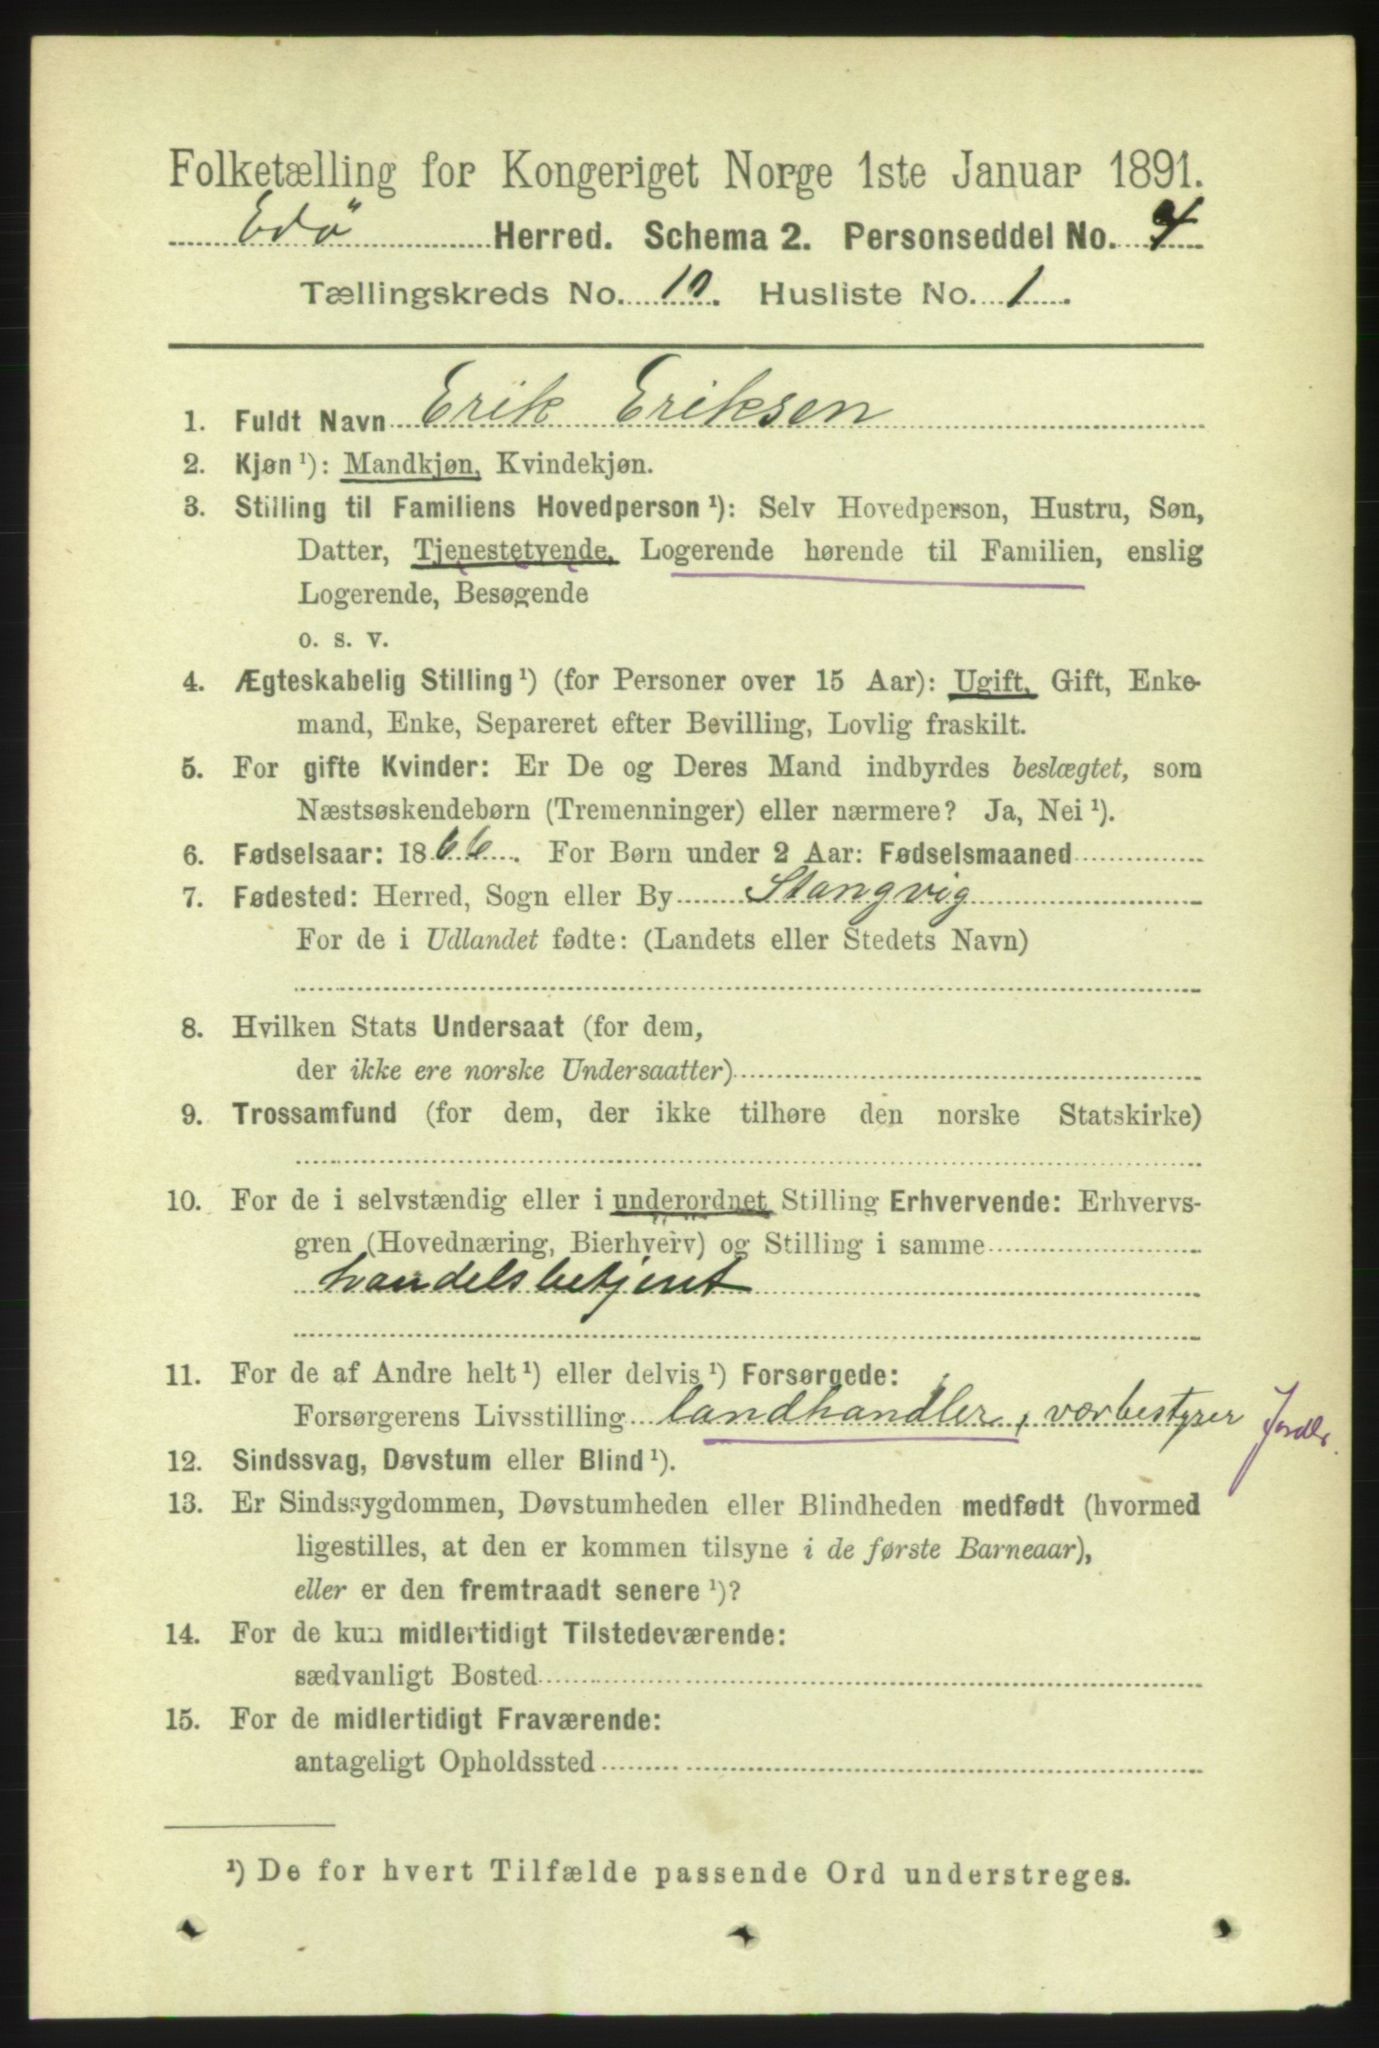 Folketælling for Kongeriget Norge 1ste Januar 1891.
Edö Herred. Schema 2. Personseddel No. 4
Tællingskreds No. 10. Husliste No. 1.
1. Fuldt Navn Erik Eriksen
2. Kjøn ¹): Mandkjøn, Kvindekjøn.
3. Stilling til Familiens Hovedperson ¹): Selv Hovedperson, Hustru, Søn,
Datter, Tjenestetyende, Logerende hørende til Familien, enslig
Logerende, Besøgende
o. s. v.
4. Ægteskabelig Stilling ¹) (for Personer over 15 Aar): Ugift, Gift, Enke-
mand, Enke, Separeret efter Bevilling, Lovlig fraskilt.
5. For gifte Kvinder: Er De og Deres Mand indbyrdes beslægtet, som
Næstsøskendebørn (Tremenninger) eller nærmere? Ja, Nei ¹).
6. Fødselsaar: 1866. For Børn under 2 Aar: Fødselsmaaned
7. Fødested: Herred, Sogn eller By Stangvig
For de i Udlandet fødte: (Landets eller Stedets Navn)
8. Hvilken Stats Undersaat (for dem,
der ikke ere norske Undersaatter)
9. Trossamfund (for dem, der ikke tilhøre den norske Statskirke)
10. For de i selvstændig eller i underordnet Stilling Erhvervende: Erhvervs-
gren (Hovednæring, Bierhverv) og Stilling i samme
handelsbetjent
11. For de af Andre helt ¹) eller delvis ¹) Forsørgede:
Forsørgerens Livsstilling landhandler, værbestyrer
12. Sindssvag, Døvstum eller Blind ¹).
13. Er Sindssygdommen, Døvstumheden eller Blindheden medfødt (hvormed
ligestilles, at den er kommen tilsyne i de første Barneaar),
eller er den fremtraadt senere ¹)?
14. For de kun midlertidigt Tilstedeværende:
sædvanligt Bosted
15. For de midlertidigt Fraværende:
antageligt Opholdssted
¹) De for hvert Tilfælde passende Ord understreges.